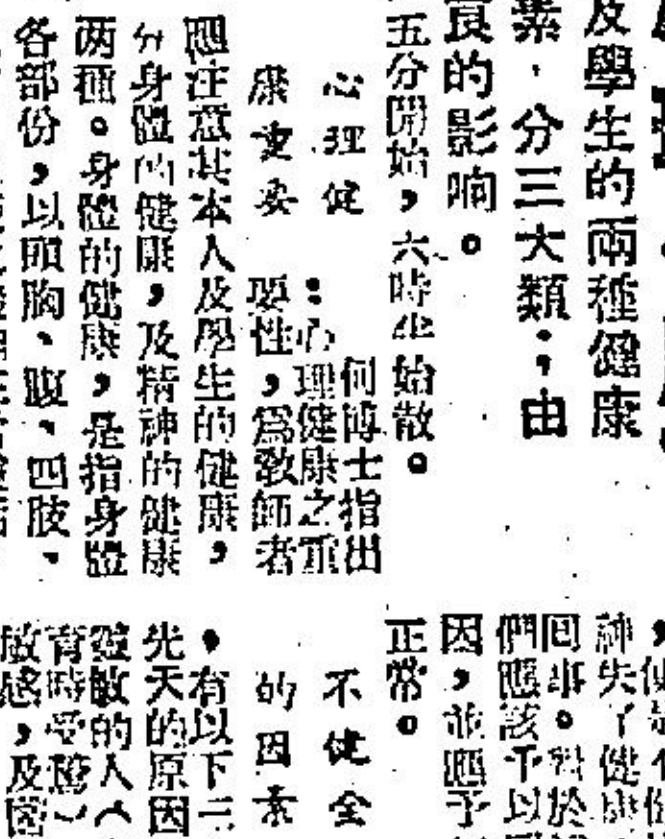 及學生的兩種健康
素．分三大類；由
良的影响。
五分開始，六時止始散。
心理健
康重要
何博士指出
：心理健康之重
要性，為教師者
應注意其本人及學生的健康，
分身體的健康，及精神的健康
两種。身體的健康，是指身體
各部份，以頭胸、腹、四肢、
神失了健康
回事。對於
們應該予以
因，並應予
正常。
不健全
的因素
，有以下三
先天的原因
靈敏的人（
育時受驚）
敏感，及